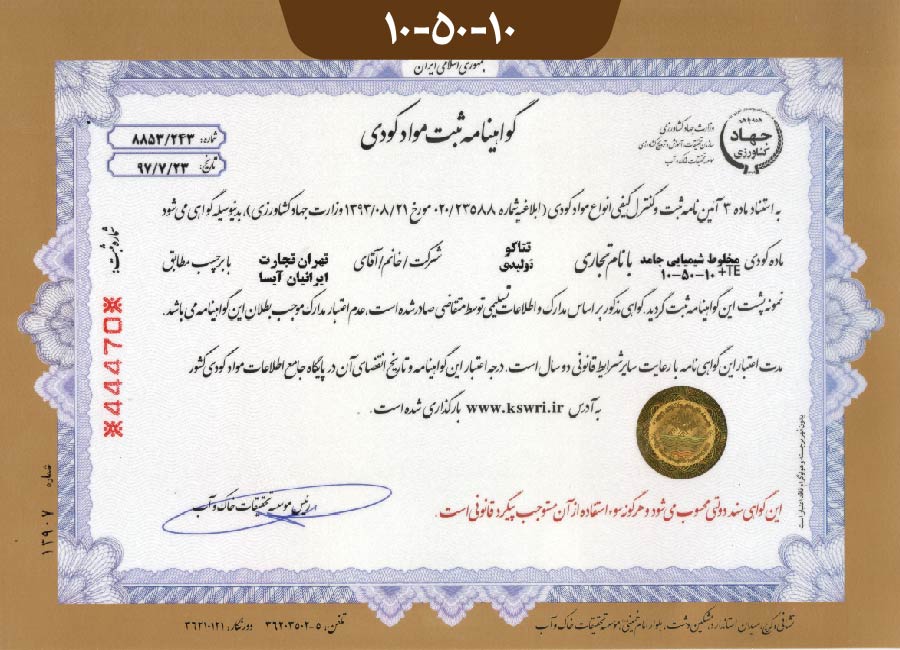 ۱۰-۵۰-۱۰
جمهوری اسلامی ایران
گواهینامه ثبت مواد کودی
وزارت جهاد کشاورزی
سازمان تحقیقات، آموزش و ترویج کشاورزی
موسسه تحقیقات خاک و آب
جهاد
کشاورزی
شماره: ۸۸۵۳/۲۴۳
تاریخ: ۹۷/۷/۲۳
به استناد ماده ۳ آئین نامه ثبت و کنترل کیفی انواع مواد کودی (ابلاغیه شماره ۰۲۰/۲۳۵۸۸ مورخ ۱۳۹۳/۰۸/۲۱ وزارت جهاد کشاورزی)، بدینوسیله گواهی می شود
ماده کودی مخلوط شیمیایی جامد ۱۰-۵۰-۱۰ +TE با نام تجاری تتاکو تولیدی شرکت / خانم / آقای تهران تجارت ایرانیان آیسا با برچسب مطابق
نمونه پشت این گواهینامه ثبت گردید. گواهی مذکور بر اساس مدارک و اطلاعات تسلیمی توسط متقاضی صادر شده است. عدم اعتبار مدارک موجب بطلان این گواهینامه می باشد.
مدت اعتبار این گواهی نامه با رعایت سایر شرایط قانونی دو سال است. درجه اعتبار این گواهینامه و تاریخ انقضای آن در پایگاه جامع اطلاعات مواد کودی کشور
به آدرس www.kswri.ir بارگذاری شده است.
شماره ثبت:
※44470※
رئیس موسسه تحقیقات خاک و آب
این گواهی سند دولتی محسوب می شود و هرگونه سوء استفاده از آن مستوجب پیگرد قانونی است.
بدون مهر برجسته و هولوگرام فاقد اعتبار است
شماره ۱۳۹۰۷
نشانی: کرج، میدان استاندارد، مشکین دشت، بلوار امام خمینی، موسسه تحقیقات خاک و آب
تلفن: ۵-۳۶۲۰۳۵۰۲ دورنگار: ۳۶۲۱۰۱۲۱